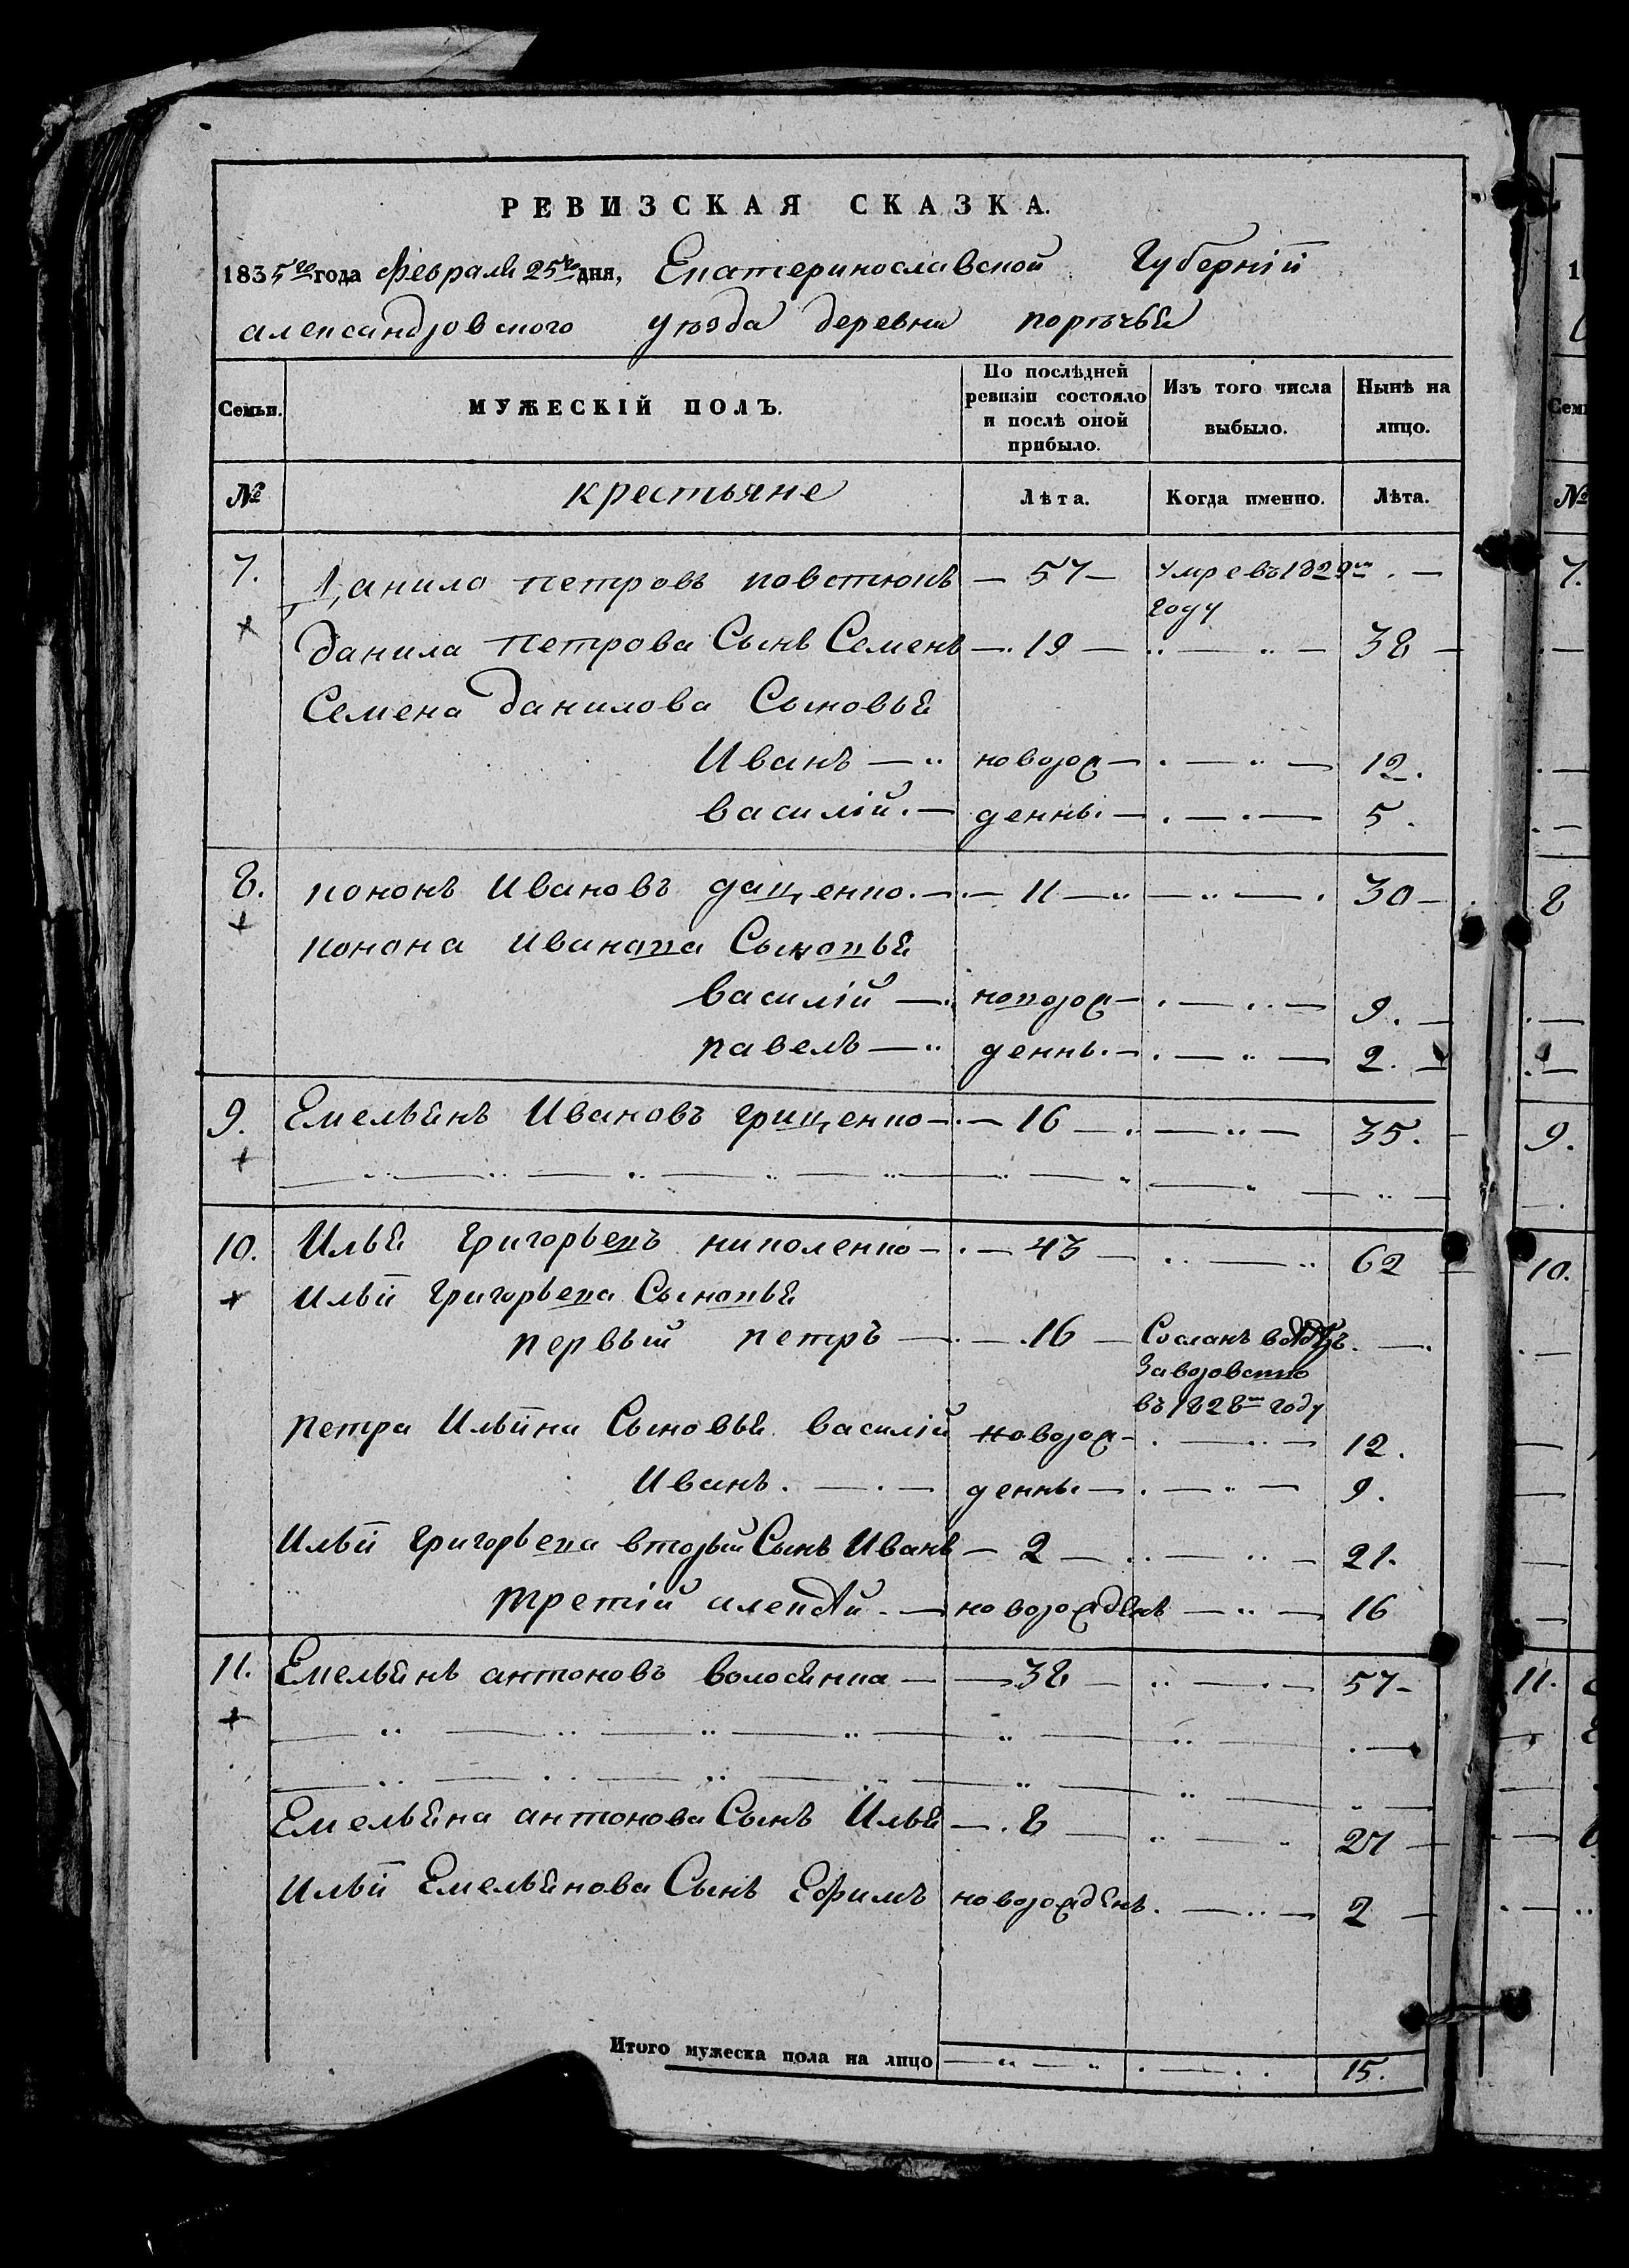 РЕВИЗСКАЯ СКАЗКА.
1835го года Февраля 25го дня, Екатеринославской Губерніи
александровского уезда деревни поречья
Семьи.
МУЖЕСКІЙ ПОЛЪ.
По послѣдней ревизіи состояло и послѣ оной прибыло.
Изъ того числа выбыло.
Нынѣ на лицо.
№ крестьяне Лѣта. Когда именно. Лѣта.
7. Данило петровъ — 57 — умре въ 1829м
году
данила петрова Сынъ Семенъ — 19 — 38
Семена данилова Сыновья
Иванъ — новорож — 12.
василій. — денны — 5.
8. кононъ Ивановъ дащенко. — 11 — 30
конона иванова Сыновья
василій — новорож — 9.
павелъ — денны — 2.
9. Емельянъ Ивановъ грищенко — 16 — 35.
10. Илья григорьевъ николенко — 43 — 62
Ильи григорьева Сыновья
первый петръ — 16 — Сосланъ
въ 1828м году
петра Ильина Сыновья василій новорож — 12.
Иванъ. — денны — 9.
Ильи григорьева вторый Сынъ Иванъ — 2 — 21.
третій алексѣй. — новорожденъ — 16
11. Емельянъ антоновъ волосянка — 38 — 57
Емельяна антонова Сынъ Илья — 8 — 27
Ильи Емельянова Сынъ Ефимъ новорожденъ. — 2
Итого мужеска пола на лицо 15.